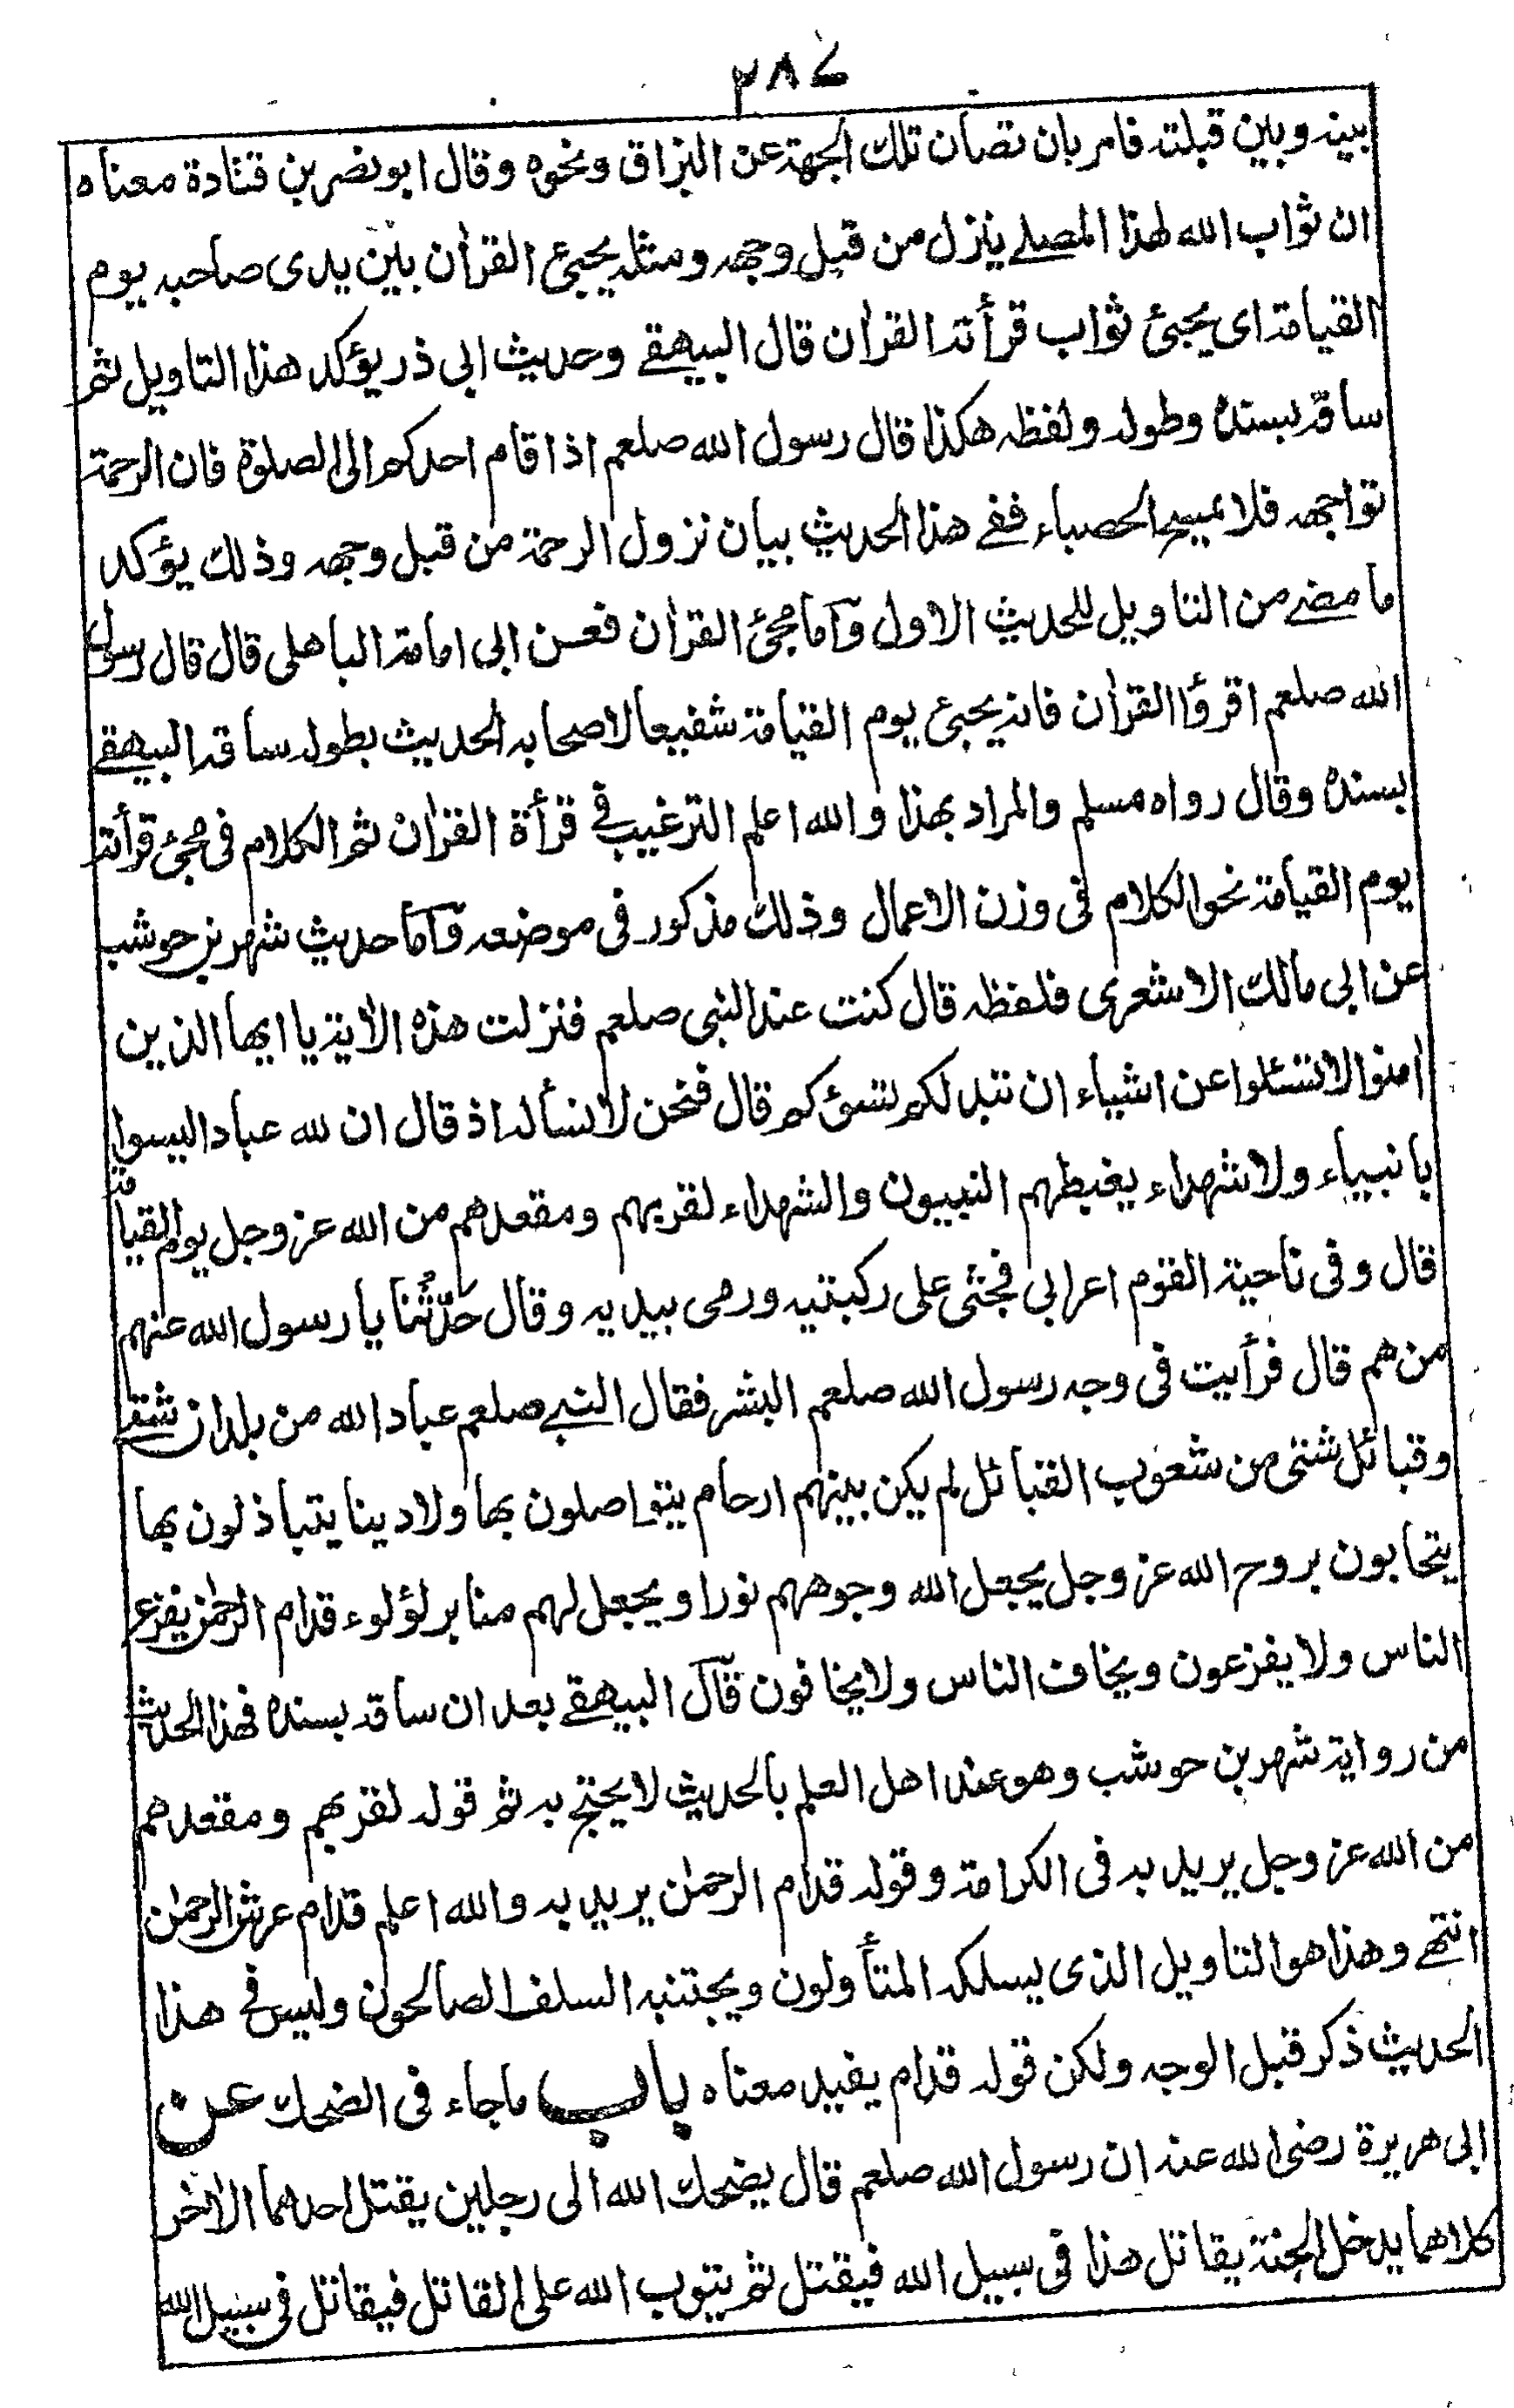 ٢٨٤
بينه وبين قبلته فامر بان تصان تلك الجهة عن البزاق ونحوه وقال ابو نصر بن قتادة معناه
ان ثواب الله لهذا المصلے ينزل من قبل وجهه ومثله يجئ القرآن بين يدى صاحبه يوم
القيامة اى يجئ ثواب قرأته القرآن قال البيهقے وحديث ابى ذر يؤكد هذا التاويل ثم
ساقه بسنده وطوله ولفظه هكذا قال رسول الله صلعم اذا قام احدكم الى الصلوة فان الرحمة
تواجهه فلا يمسح الحصباء ففے هذا الحديث بيان نزول الرحمة من قبل وجهه وذلك يؤكد
ما مضے من التاويل للحديث الاول وآما مجئ القرآن فعن ابى امامة الباهلى قال قال رسول
الله صلعم اقرؤا القرآن فانه يجئ يوم القيامة شفيعا لاصحابه الحديث بطوله ساقه البيهقے
بسنده وقال رواه مسلم والمراد بهذا والله اعلم الترغيب فے قرأة القرآن ثم الكلام فى مجئ قرأته
يوم القيامة نحو الكلام فى وزن الاعمال وذلك مذكور فى موضعه وآما حديث شهر بن حوشب
عن ابى مالك الاشعرى فلفظه قال كنت عند النبى صلعم فنزلت هذه الآية يا ايها الذين
امنوا لا تسئلوا عن اشياء ان تبد لكم تسؤكم قال فنحن لا نسأله اذ قال ان لله عبادا ليسوا
بانبياء ولا شهداء يغبطهم النبيون والشهداء لقربهم ومقعدهم من الله عز وجل يوم القيامة
قال وفى ناحية القوم اعرابى فجثى على ركبتيه ورمى بيديه وقال حَدِّثْنا يا رسول الله عنهم
من هم قال فرأيت فى وجه رسول الله صلعم البشر فقال النبے صلعم عباد الله من بلدان شتے
وقبائل شتى من شعوب القبائل لم يكن بينهم ارحام يتواصلون بها ولا دينا يتباذلون بها
يتحابون بروح الله عز وجل يجعل الله وجوههم نورا ويجعل لهم منابر لؤلوء قدام الرحمن يفزع
الناس ولا يفزعون ويخاف الناس ولا يخافون قآل البيهقے بعد ان ساقه بسنده فهذا الحديث
من رواية شهر بن حوشب وهو عند اهل العلم بالحديث لا يحتج به ثم قوله لقربهم ومقعدهم
من الله عز وجل يريد به فى الكرامة وقوله قدام الرحمٰن يريد به والله اعلم قدام عرش الرحمٰن
انتهے وهذا هو التاويل الذى يسلكه المتأولون ويجتنبه السلف الصالحون وليس فے هذا
الحديث ذكر قبل الوجه ولكن قوله قدام يفيد معناه باب ماجاء فى الضحك عن
ابى هريرة رضى الله عنه ان رسول الله صلعم قال يضحك الله الى رجلين يقتل احدهما الآخر
كلاهما يدخل الجنة يقاتل هذا فى سبيل الله فيقتل ثم يتوب الله على القاتل فيقاتل فى سبيل الله